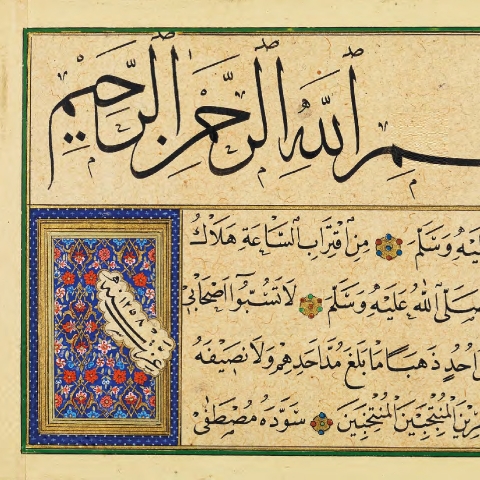 ـم الله الرحمن الرحيم
ـليه وسلم من اقتراب الساعة هلاك
صلى الله عليه وسلم لا تسبوا اصحابى
احد ذهبا ما بلغ مد احدهم ولا نصيفه
ـرين المنتجبين المنتخبين سوده مصطفى
سنه ١٢٥٨